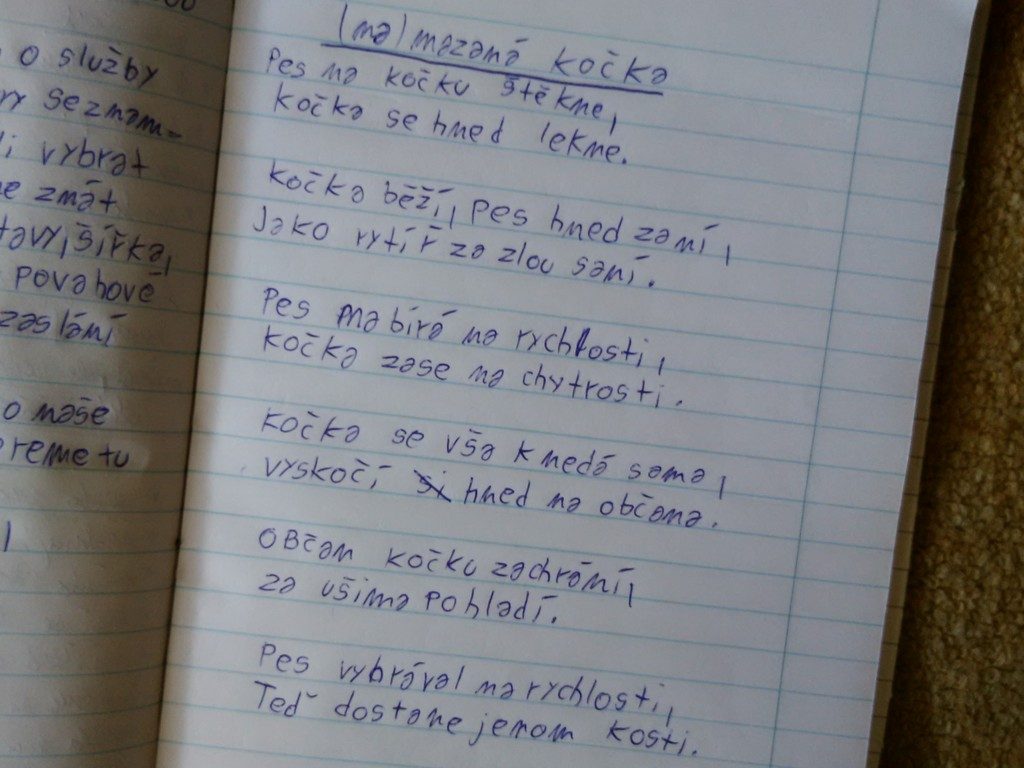 o služby
seznam-
vybrat
znát
šířka,
povahové
zaslání
o naše
(na)mazaná kočka
Pes na kočku štěkne,
kočka se hned lekne.
kočka běží, pes hned za ní,
Jako rytíř za zlou saní.
Pes nabírá na rychlosti,
kočka zase na chytrosti.
kočka se však nedá sama,
vyskočí hned na občana.
Občan kočku zachrání,
za ušima pohladí.
Pes vybrával na rychlosti,
Teď dostane jenom kosti.